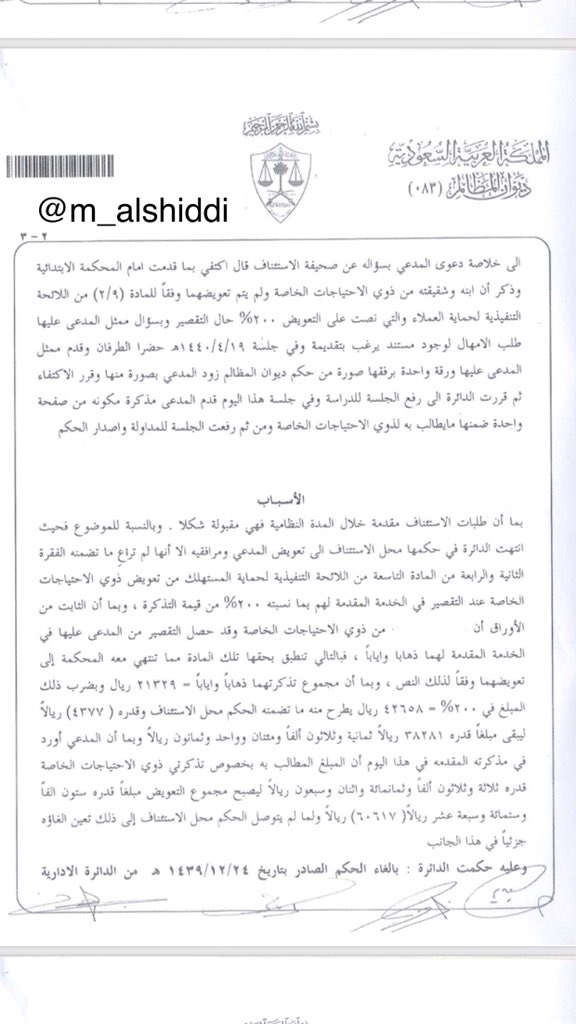 بسم الله الرحمن الرحيم
المملكة العربية السعودية
ديوان المظالم (٠٨٣)
@m_alshiddi
٢ - ٣
الى خلاصة دعوى المدعي بسؤاله عن صحيفة الاستئناف قال اكتفي بما قدمت امام المحكمة الابتدائية
وذكر أن ابنه وشقيقته من ذوي الاحتياجات الخاصة ولم يتم تعويضهما وفقاً للمادة (٢/٩) من اللائحة
التنفيذية لحماية العملاء والتي نصت على التعويض ٢٠٠% حال التقصير وبسؤال ممثل المدعى عليها
طلب الامهال لوجود مستند يرغب بتقديمة وفي جلسة ١٤٤٠/٤/١٩هـ حضرا الطرفان وقدم ممثل
المدعى عليها ورقة واحدة برفقها صورة من حكم ديوان المظالم زود المدعي بصورة منها وقرر الاكتفاء
ثم قررت الدائرة الى رفع الجلسة للدراسة وفي جلسة هذا اليوم قدم المدعى مذكرة مكونه من صفحة
واحدة ضمنها مايطالب به لذوي الاحتياجات الخاصة ومن ثم رفعت الجلسة للمداولة واصدار الحكم
الأسباب
بما أن طلبات الاستئناف مقدمة خلال المدة النظامية فهي مقبولة شكلا . وبالنسبة للموضوع فحيث
انتهت الدائرة في حكمها محل الاستئناف الى تعويض المدعي ومرافقيه الا أنها لم تراع ما تضمنه الفقرة
الثانية والرابعة من المادة التاسعة من اللائحة التنفيذية لحماية المستهلك من تعويض ذوي الاحتياجات
الخاصة عند التقصير في الخدمة المقدمة لهم بما نسبته ٢٠٠% من قيمة التذكرة ، وبما أن الثابت من
الأوراق أن من ذوي الاحتياجات الخاصة وقد حصل التقصير من المدعى عليها في
الخدمة المقدمة لهما ذهابا واياباً ، فبالتالي تنطبق بحقها تلك المادة مما تنتهي معه المحكمة إلى
تعويضهما وفقاً لذلك النص ، وبما أن مجموع تذكرتهما ذهاباً واياباً = ٢١٣٢٩ ريال وبضرب ذلك
المبلغ في ٢٠٠% = ٤٢٦٥٨ ريال يطرح منه ما تضمنه الحكم محل الاستئناف وقدره ( ٤٣٧٧) ريالاً
ليبقى مبلغاً قدره ٣٨٢٨١ ريالاً ثمانية وثلاثون ألفاً ومئتان وواحد وثمانون ريالاً وبما أن المدعي أورد
في مذكرته المقدمه في هذا اليوم أن المبلغ المطالب به بخصوص تذكرتي ذوي الاحتياجات الخاصة
قدره ثلاثة وثلاثون ألفاً وثمانمائة واثنان وسبعون ريالاً ليصبح مجموع التعويض مبلغاً قدره ستون الفاً
وستمائة وسبعة عشر ريالاً( ٦٠٦١٧) ريالا ولما لم يتوصل الحكم محل الاستئناف إلى ذلك تعين الغاؤه
جزئياً في هذا الجانب
وعليه حكمت الدائرة : بالغاء الحكم الصادر بتاريخ ١٤٣٩/١٢/٢٤ هـ من الدائرة الادارية